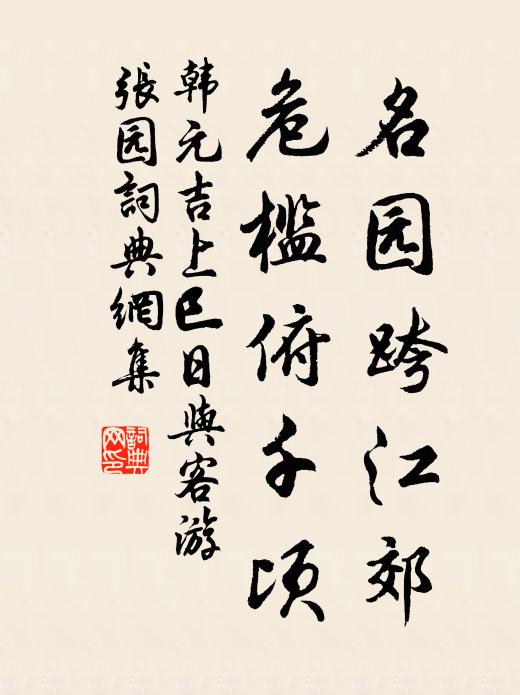 名园跨江郊
危槛俯千顷
韩元吉上巳日與客游
張园詞典網集
詞典网印